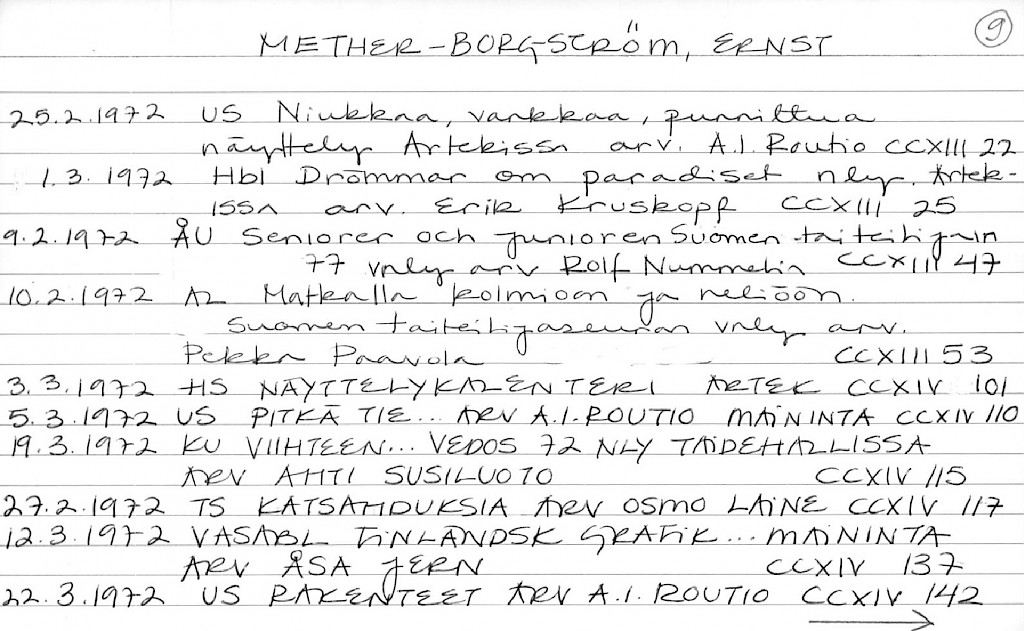 9
METHER-BORGSTRÖM, ERNST
25.2.1972 US Niukkaa, vankkaa, punnittua
näyttely Artekissa arv. A.I. Routio CCXIII 22
1.3.1972 Hbl Drömmar om paradiset nly. Artek-
issa arv. Erik Kruskopf CCXIII 25
9.2.1972 ÅU Seniorer och junioren Suomen taiteilijain
77 vnly arv Rolf Nummelin CCXIII 47
10.2.1972 AL Matkalla kolmioon ja neliöön.
Suomen taiteilijaseuran vnly arv.
Pekka Paavola CCXIII 53
3.3.1972 HS NÄYTTELYKALENTERI ARTEK CCXIV 101
5.3.1972 US PITKÄ TIE... ARV A.I. ROUTIO MAININTA CCXIV 110
19.3.1972 KU VIIHTEEN... VEDOS 72 NLY TAIDEHALLISSA
ARV AHTI SUSILUOTO CCXIV 115
27.2.1972 TS KATSAHDUKSIA ARV OSMO LAINE CCXIV 117
12.3.1972 VASABL FINLÄNDSK GRAFIK... MAININTA
ARV ÅSA JERN CCXIV 137
22.3.1972 US RAKENTEET ARV A.I. ROUTIO CCXIV 142